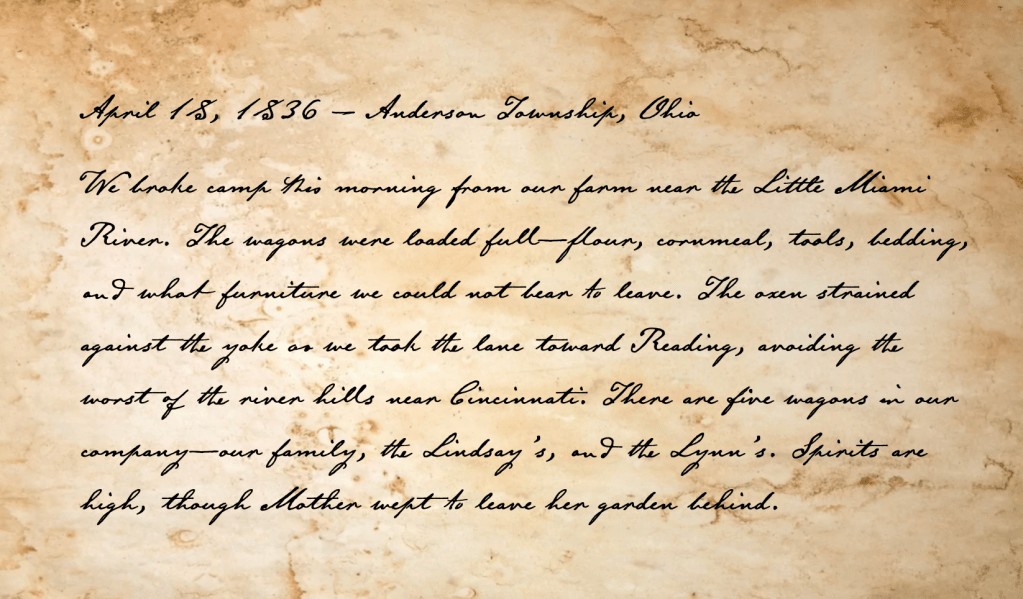 April 18, 1836 — Anderson Township, Ohio
We broke camp this morning from our farm near the Little Miami
River. The wagons were loaded full—flour, cornmeal, tools, bedding,
and what furniture we could not bear to leave. The oxen strained
against the yoke as we took the lane toward Reading, avoiding the
worst of the river hills near Cincinnati. There are five wagons in our
company—our family, the Lindsay's, and the Lynn's. Spirits are
high, though Mother wept to leave her garden behind.